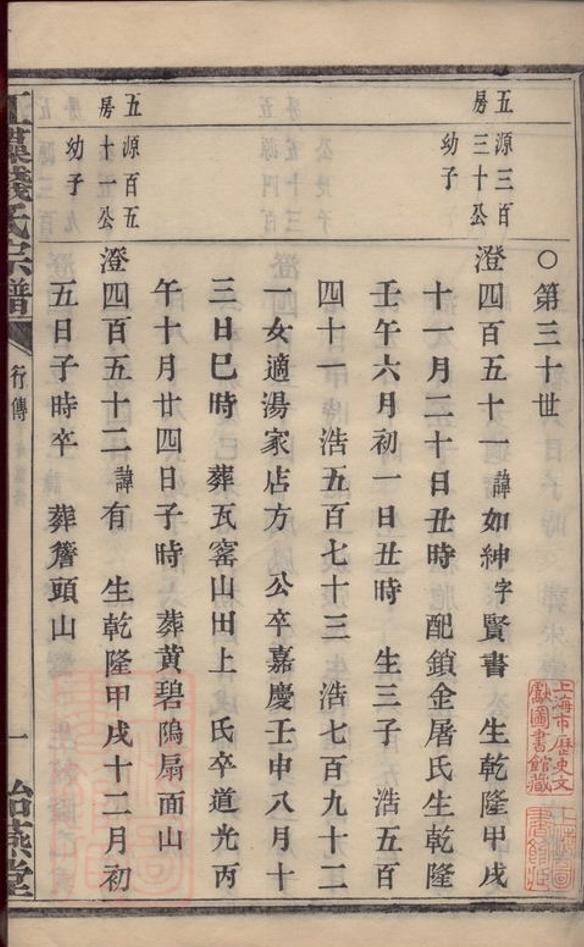 五源三百
房三十公
幼子
五源百五
房十一公
幼子
○第三十世
澄四百五十一諱如紳字賢書 生乾隆甲戌
十一月二十日丑時 配鎖金屠氏生乾隆
壬午六月初一日丑時 生三子 浩五百
四十一 浩五百七十三 浩七百九十二
一女適湯家店方 公卒嘉慶壬申八月十
三日巳時 葬瓦窰山田上 氏卒道光丙
午十月廿四日子時 葬黃碧隝扇面山
澄四百五十二諱有 生乾隆甲戌十二月初
五日子時卒 葬簷頭山
錢氏宗譜
行傳
一
詒燕堂
上海市歷史文
獻圖書館藏